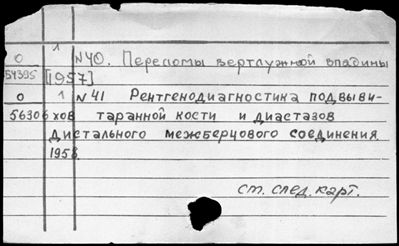 О 1 N40. Переломы вертлужной впадины
54395 [1957]
О 1 N 41 Рентгенодиагностика подвыви-
56306 хов таранной кости и диастазов
дистального межберцового соединения
1958
см. след. карт.